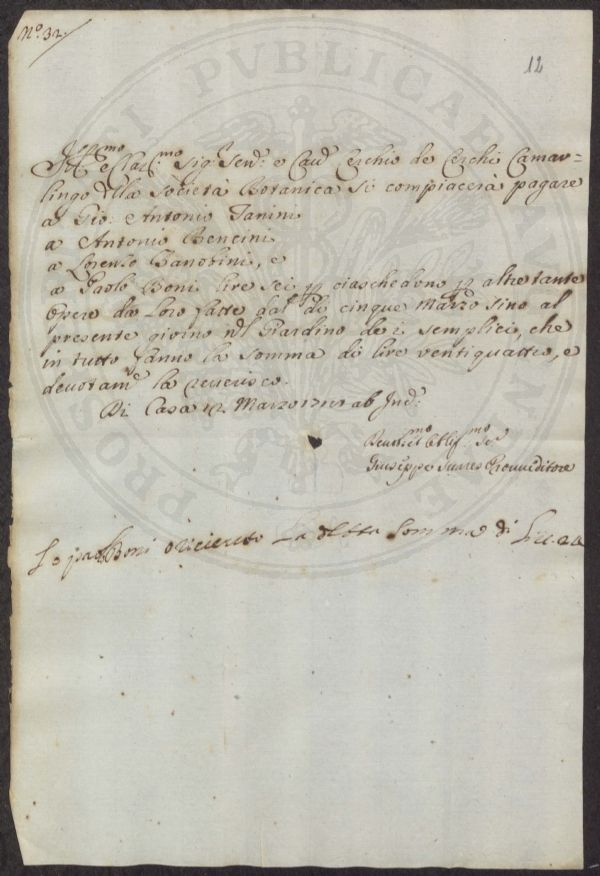 N.º 32.
12
PROSPERITATI PVBLICAE
Ill.mo e Clar.mo Sig: Sen: e Cav.e Cerchio de Cerchi Camar=
lingo della Società Botanica si compiacerà pagare
a Gio: Antonio Fanini
a Antonio Bencini
a Lorenzo Zanobini, e
a Paolo Boni lire sei p ciascheduno p altre tante
opere da loro fatte dal dì cinque Marzo sino al
presente giorno nel Giardino de i semplici, che
in tutto fanno la somma di lire ventiquattro, e
devotam.e la reverisco.
Di Casa 12 Marzo ab Ind:
Giuseppe Suares Provveditore
Io Boni o riceuto La detta somma di Lire 24